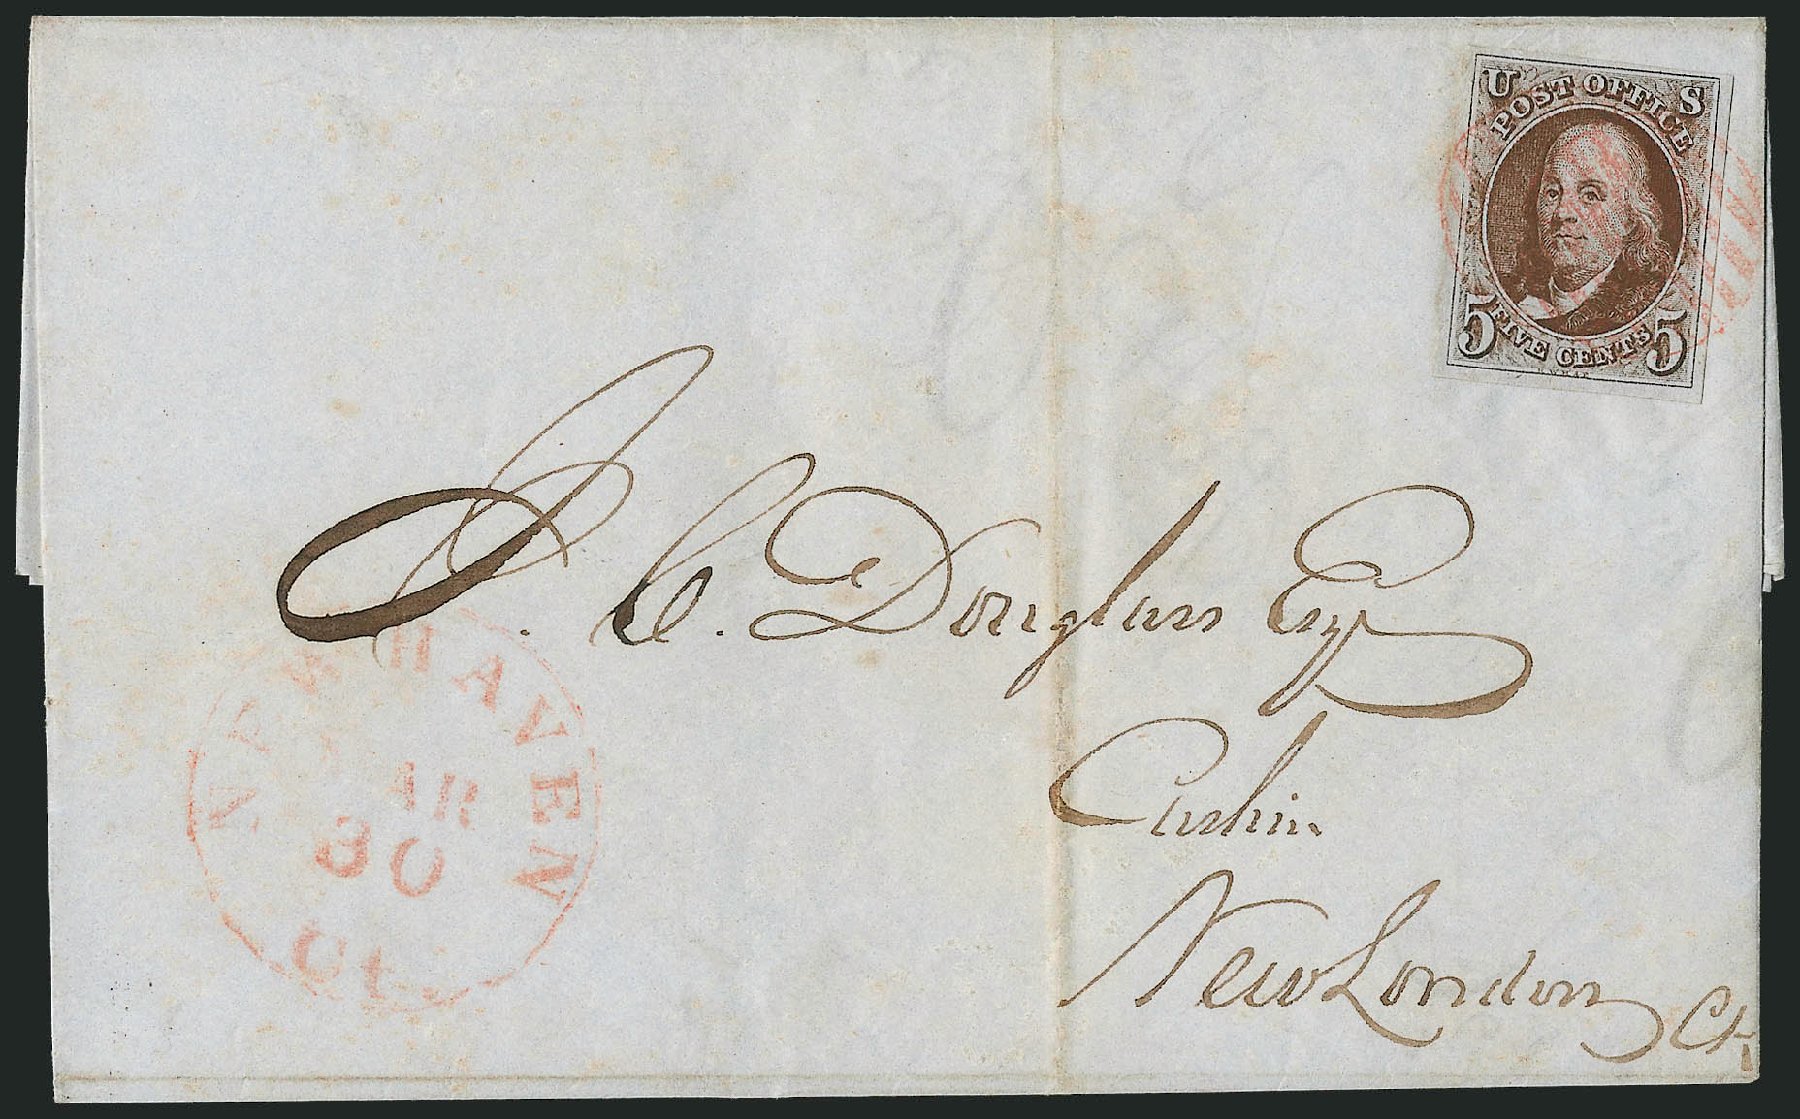 U S
POST OFFICE
5 FIVE CENTS 5
J. C. Douglass Esq
Cashier
New London Ct.
NEW HAVEN
MAR
30
Ct.